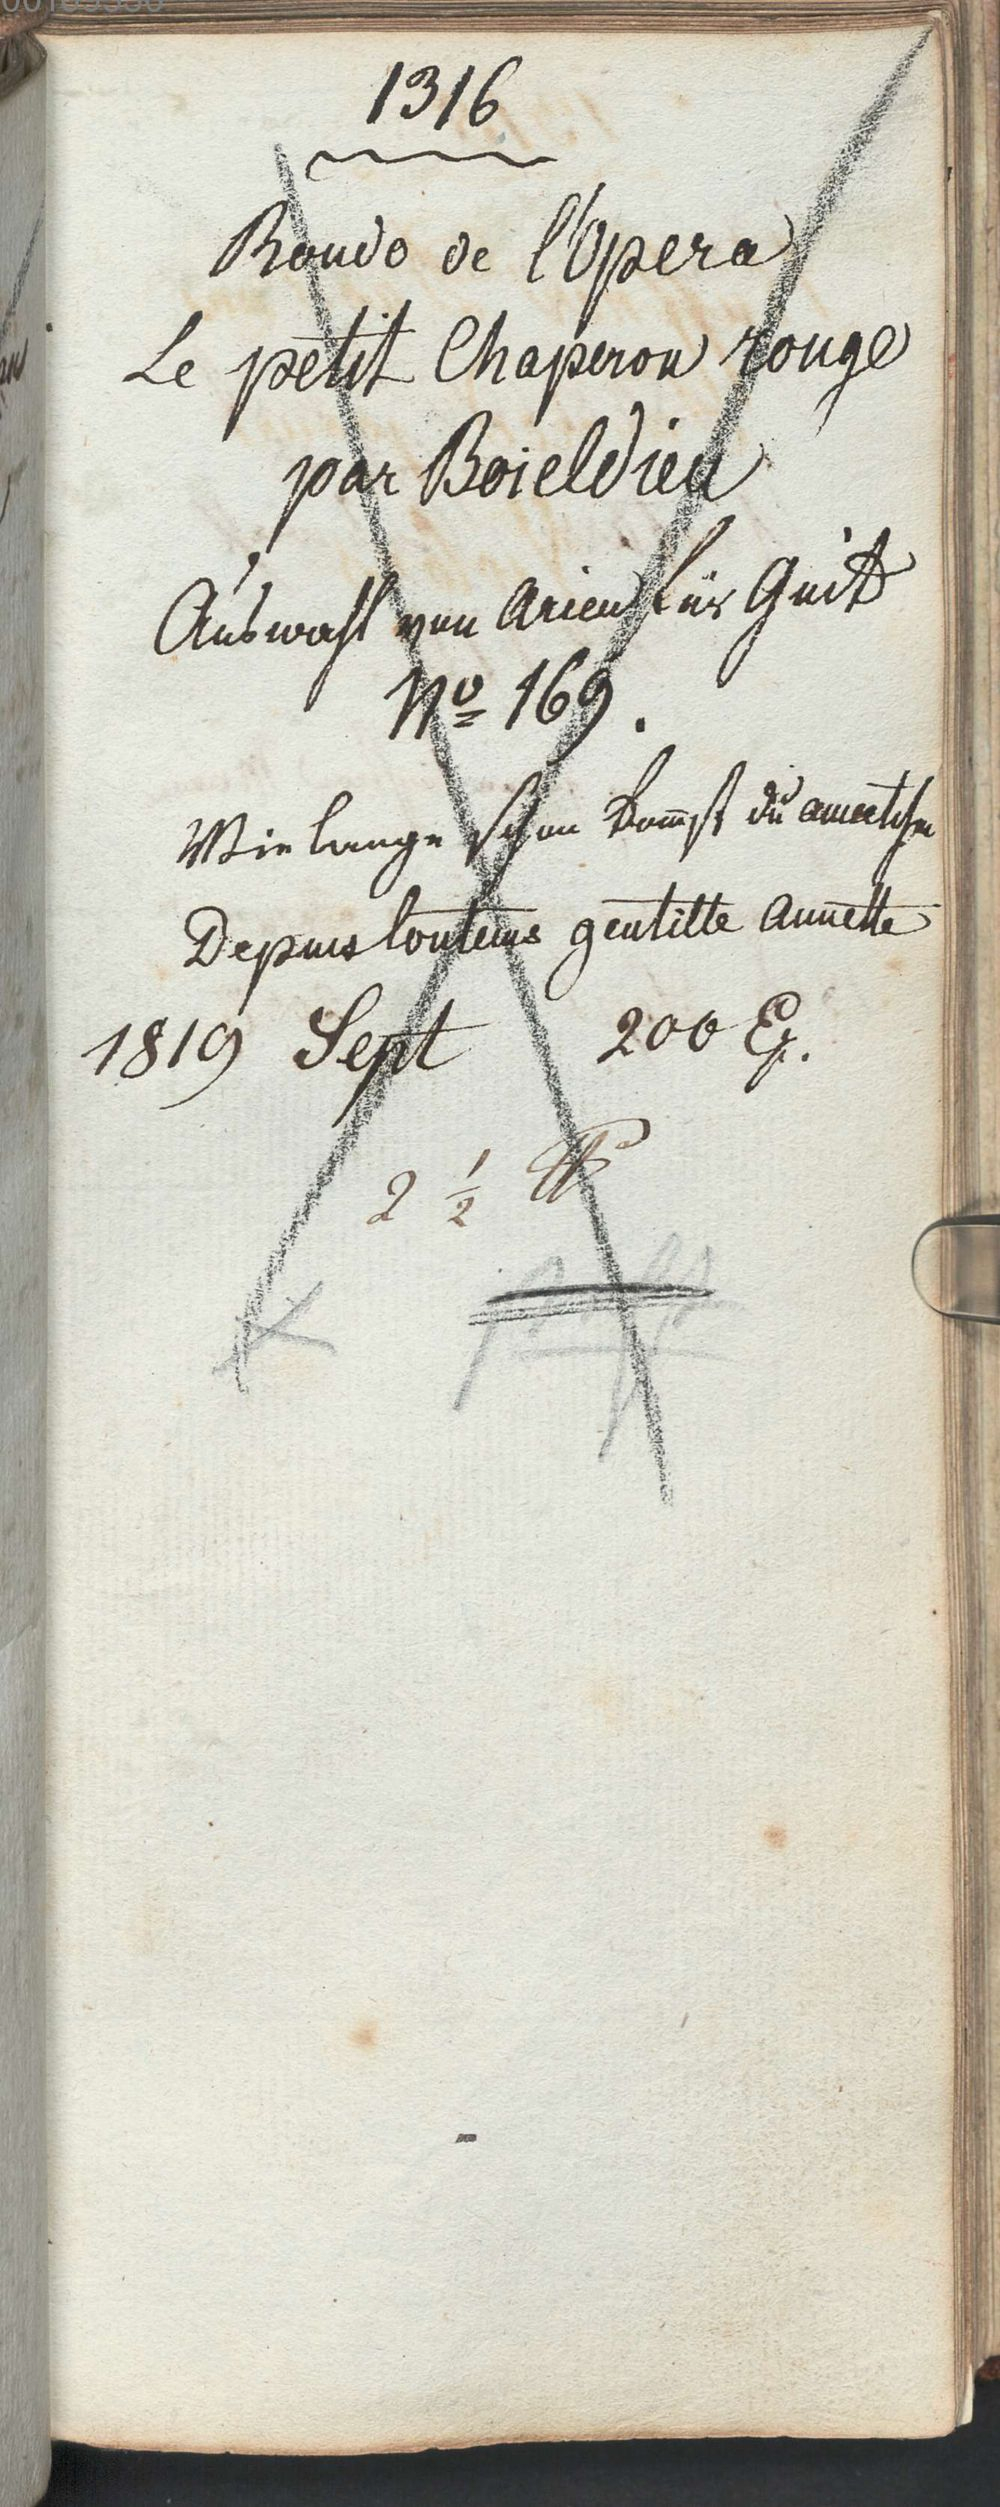 1316
Rondo de l'Opera
Le petit Chaperon rouge
par Boieldieu
Auswahl von Arien für Guit
No 169.
Wie lange schon kom̅st du
Depuis lontems gentille Annette
1819 Sept 200 Ex.
2 1/2